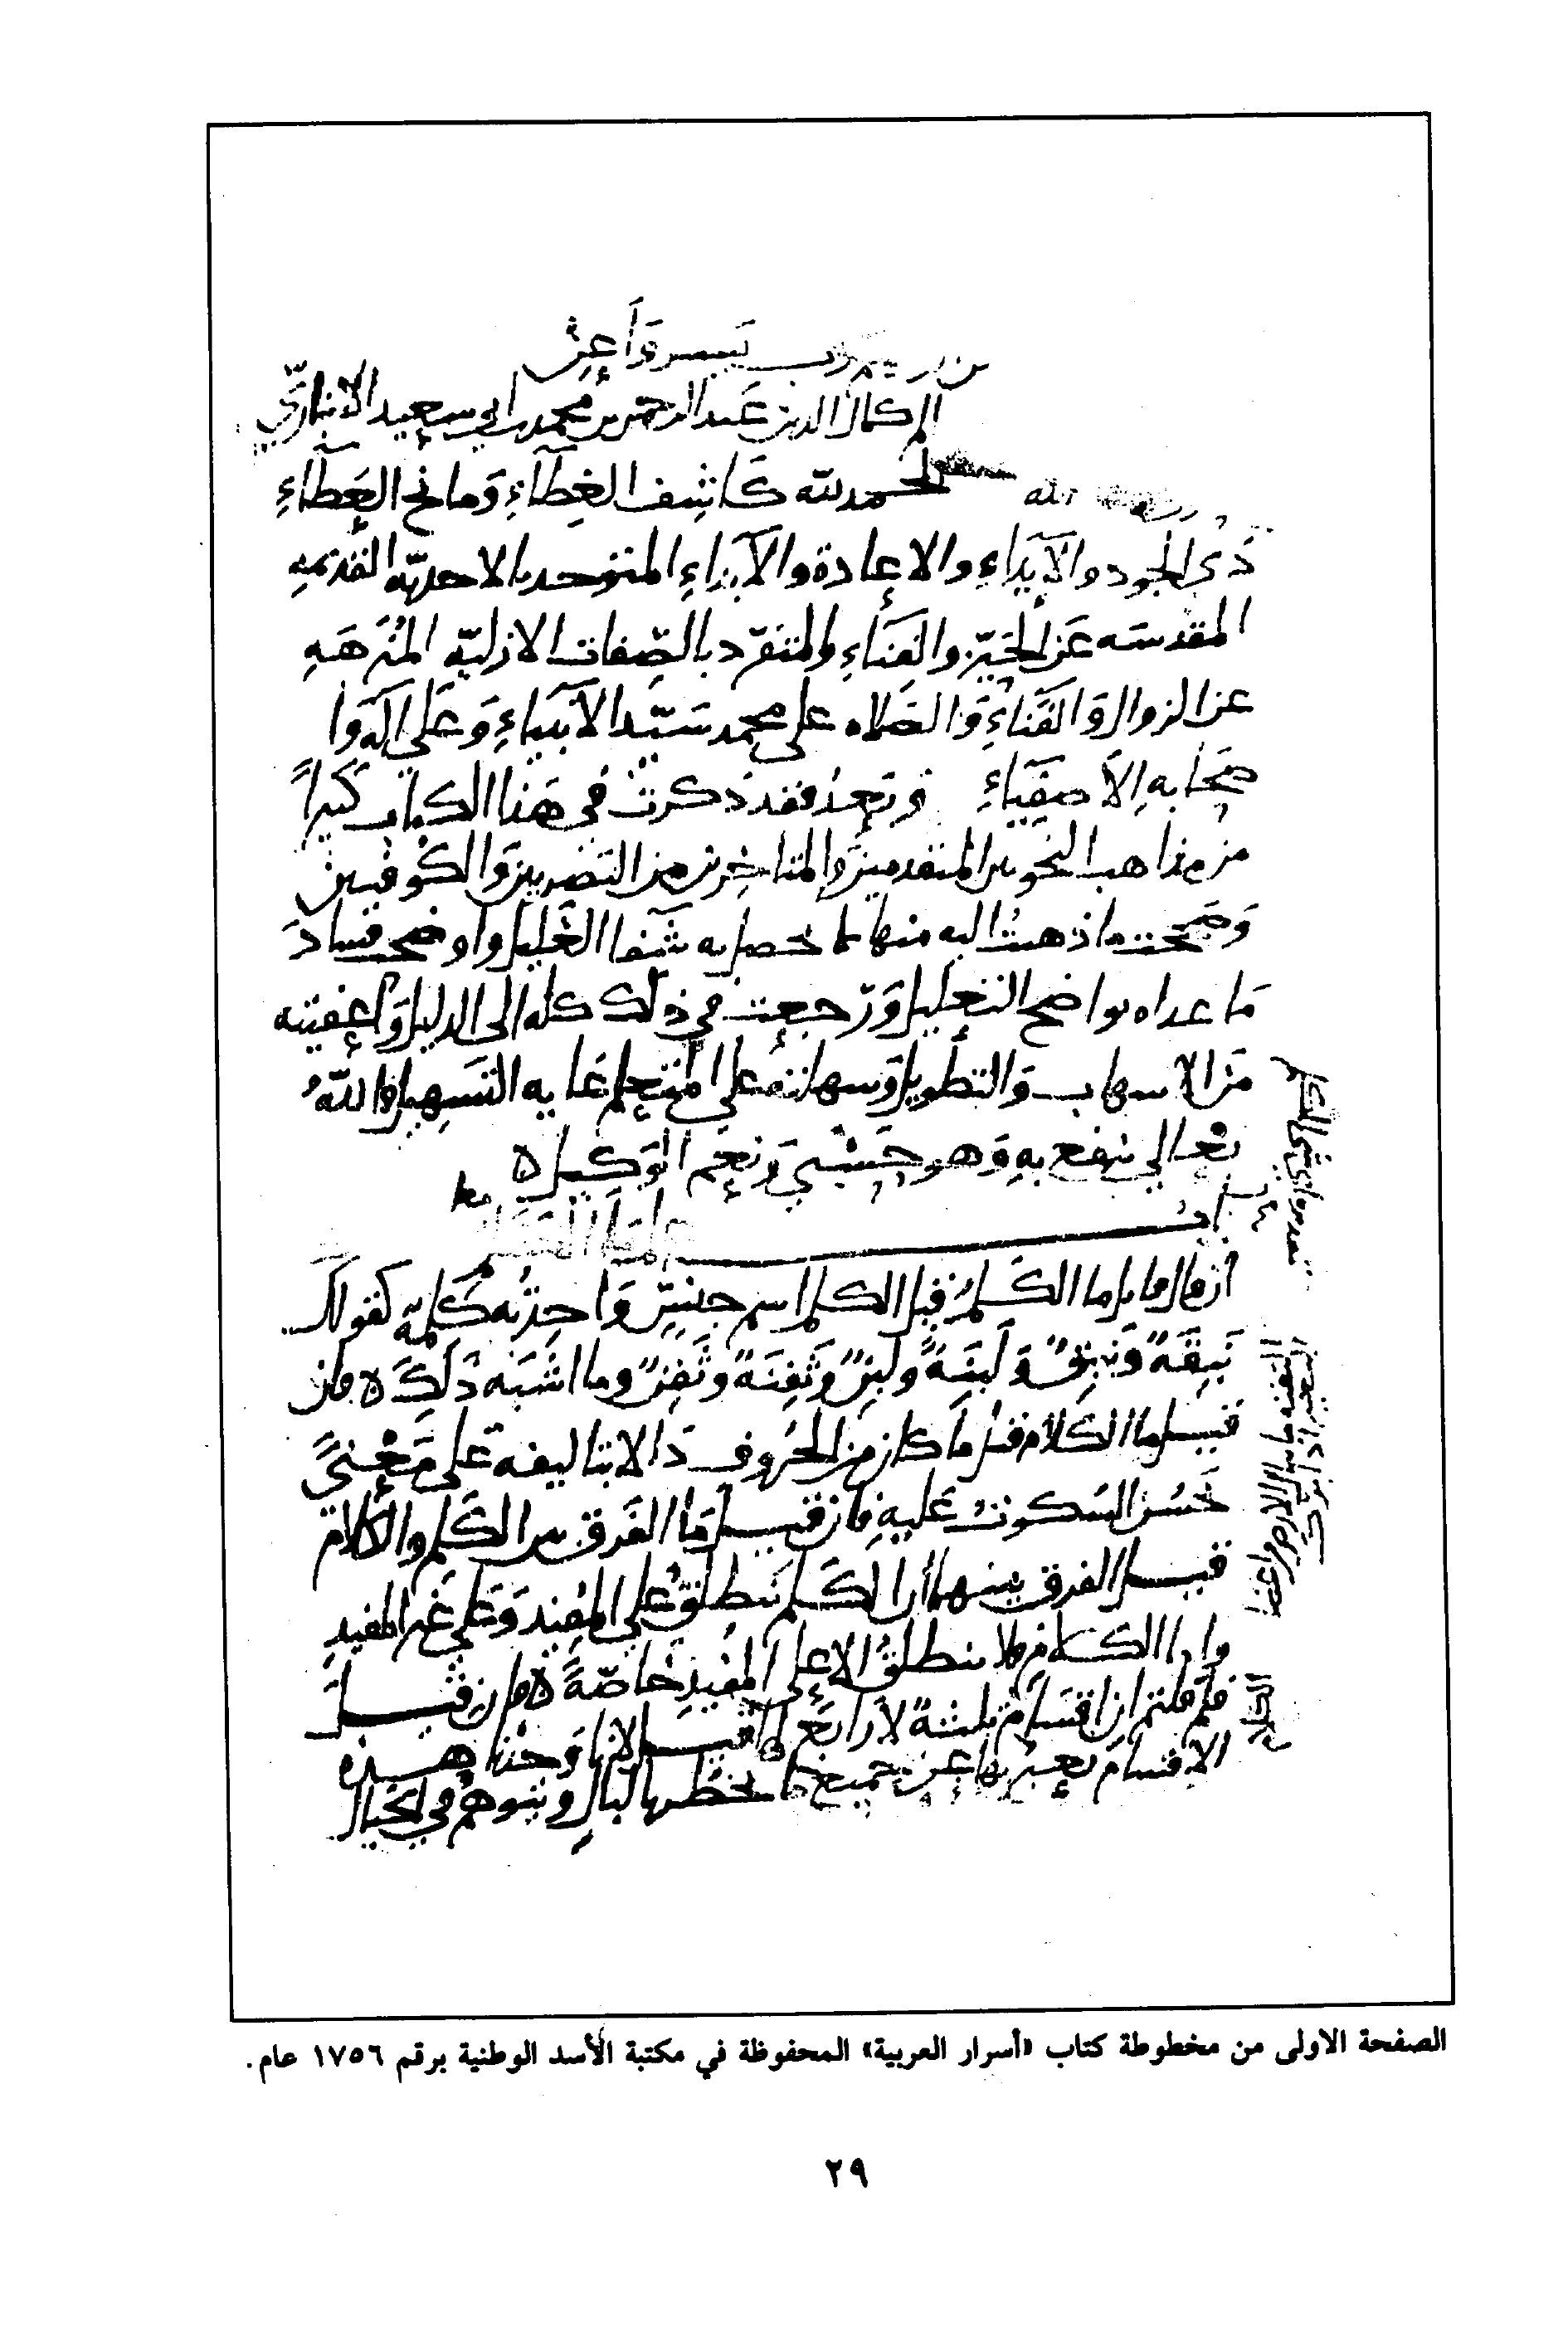 رب يسر وَأَعِنْ
كمال الدين عَبد الرحمن بن محمد بن ابي سعيد الانباريّ
الحمد لله كَاشِف الغِطَآءِ وَمانح العَطَآءِ
ذي الجود والآيداءِ والاعادة والآبداءِ المتوحد بالاحديّه القديمه
المقدسَه عَن الحَيّز والفنَاءِ والمتفرّد بالصِّفات الازليّه المُنزهَهِ
عن الزوال وَالفَناءِ وَالصَلاه على محمد سَيّد الآنبياءِ وَعَلى الَهِ وَا
صحَابهِ الاَصفِيَاءِ وَبَعدُ فقد ذكرتُ في هَذا الكتاب كثيراً
من مذاهب النحويين المتقدمين وَالمتاخرين من البَصريين وَالكوفيين
وَصَححت ما ذهبتُ اليه منها بما يحصل به شفا الغَليل واوضحت فسادَ
مَا عداه بواضح التعليل وَرَجعت في ذلك كله الى الدليل وَاَعفيته
مَن الاسهاب وَالتطويل وَسهلته عَلى المتعلم غايه التسهيل والله
تعالى ينفع بهِ وَهو حَسْبي وَنعم الوَكيل ه
باب
ان قال قايل ما الكَلمُ قيل الكلم اسم جنسٍ وَاحِدتُه كَلِمَة كقولك
نَبِقَةً وَنبِقٌ وَلَبِنَةً ولَبِنٌ وَثَفِنَةً وثَفِنٌ وما اشبَه ذَلكَ ه فان
قيل ما الكلام قيل مَا كان من الحرُوف دَالا بتاليفه عَلى مَعْنىً
يَحسُن السَكوتُ عَليهِ فان قيل مَا الفَرق بين الكَلم والكلام
قيل الفرق بينهما أن الكَلم يَنطلقُ على المفيد وَعَلى غَير المفيدِ
واما الكلام فلا ينطلقُ الا على المفيدِ خاصّةً ه فان قيل
فلم قلتم ان اقسَامَ ثلثةً لا رَابعَ لها قيل لانا وَجدنا هذه
الاقسامَ يعبرُ بها عن جميع ما يخطر بالبالِ ويتوهمُ في الخيال
الصفحة الاولى من مخطوطة كتاب «أسرار العربية» المحفوظة في مكتبة الأسد الوطنية برقم ١٧٥٦ عام.
٢٩